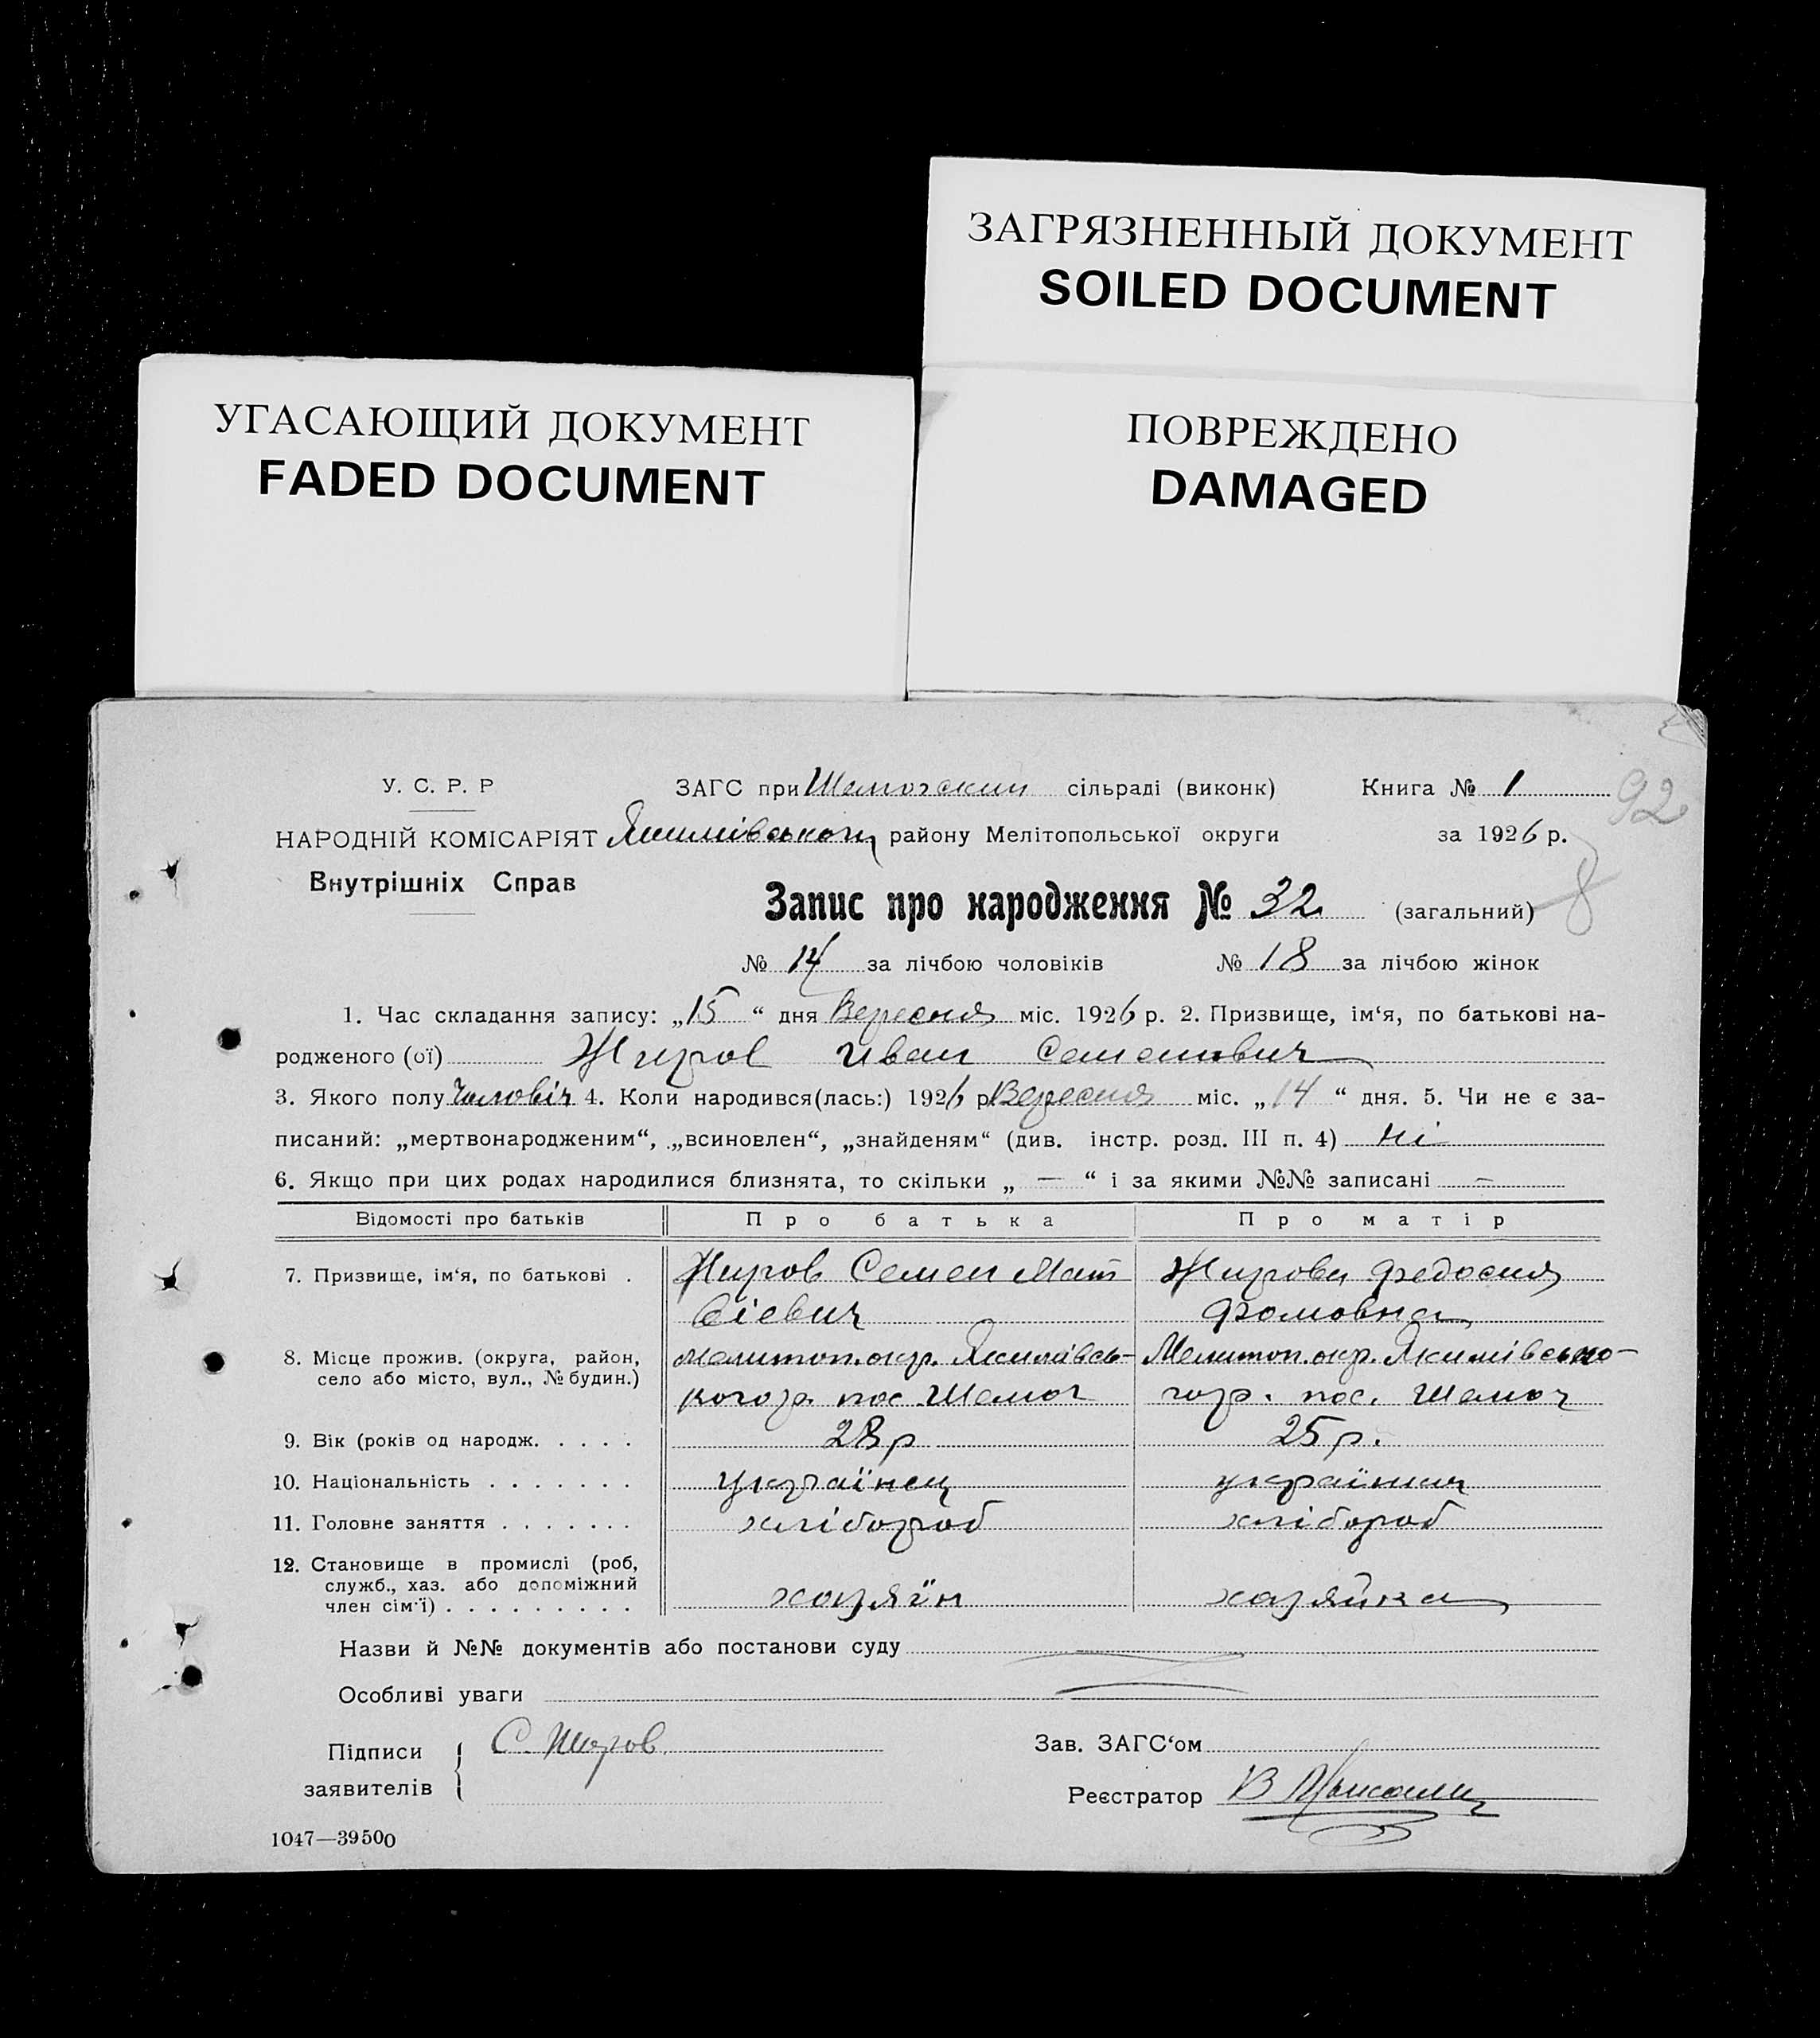 ЗАГРЯЗНЕННЫЙ ДОКУМЕНТ
SOILED DOCUMENT
УГАСАЮЩИЙ ДОКУМЕНТ
FADED DOCUMENT
ПОВРЕЖДЕНО
DAMAGED
У. С. Р. Р ЗАГС при сільраді (виконк) Книга № 1
92
НАРОДНІЙ КОМІСАРІЯТ Якимівського району Мелітопольської округи за 1926 р.
Внутрішніх Справ
8
Запис про народження № 32 (загальний)
№ 14 за лічбою чоловіків № 18 за лічбою жінок
1. Час складання запису: „15“ дня Вересня міс. 1926 р. 2. Призвище, ім‘я, по батькові на-
родженого (ої) Жиров Иван Семенович
3. Якого полу Чоловіч 4. Коли народився(лась:) 1926 р Вересня міс. „14“ дня. 5. Чи не є за-
писаний: „мертвонародженим“, „всиновлен“, „знайденям“ (див. інстр. розд. III п. 4) ні
6. Якщо при цих родах народилися близнята, то скільки „ — “ і за якими №№ записані —
Відомості про батьків Про батька Про матір
7. Призвище, ім‘я, по батькові . Жиров Семен Мат Жирова Федосия
вієвич Фомовна
8. Місце прожив. (округа, район, Мелитоп. окр. Якимівсь- Мелитоп. окр. Якимівсько-
село або місто, вул., № будин.) кого р. пос. Шемот го р. пос. Шемот
9. Вік (років од народж. . . . . 28 р 25 р.
10. Національність . . . . . . . українец українка
11. Головне заняття . . . . . . . хлібороб хлібороб
12. Становище в промислі (роб,
служб., хаз. або допоміжний
член сім‘ї) . . . . . . . . . хазяїн хазяйка
Назви й №№ документів або постанови суду
Особливі уваги
Підписи С. Жиров Зав. ЗАГС‘ом
заявителів Реєстратор В
1047—39500